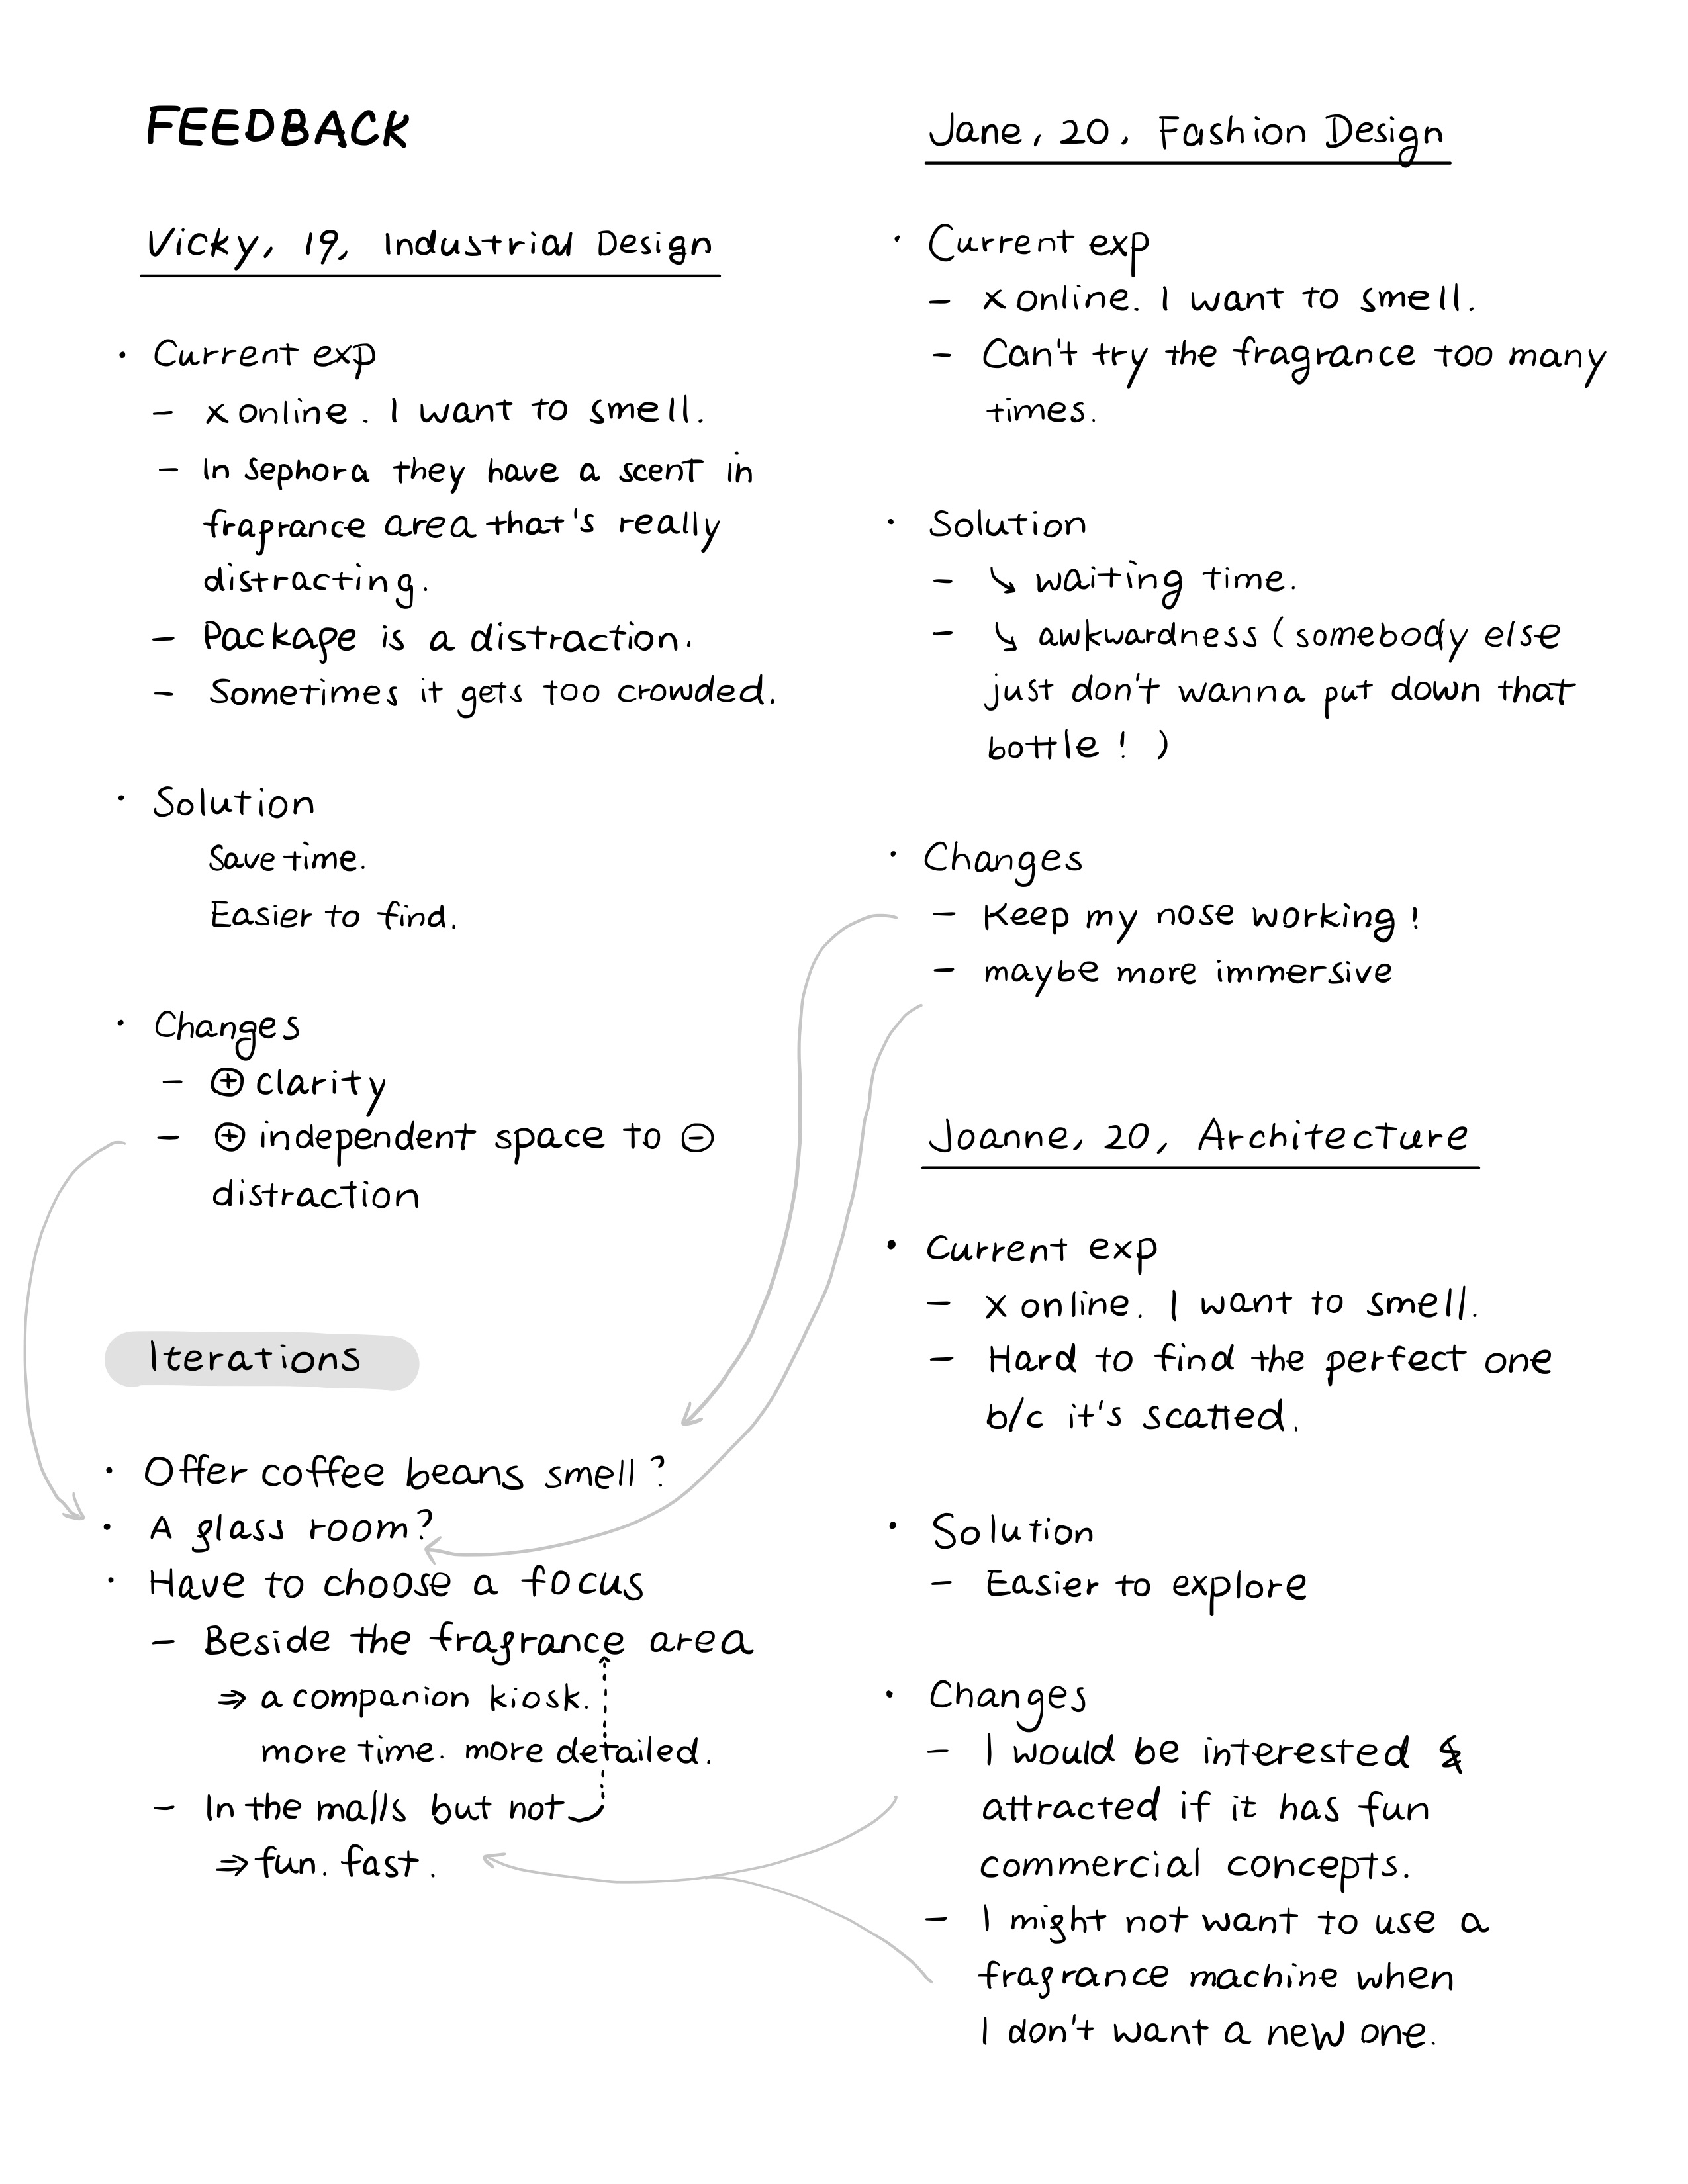 FEEDBACK
Vicky, 19, Industrial Design
• Current exp
– x online. I want to smell.
– In Sephora they have a scent in
fraprance area that's really
distracting.
– Package is a distraction.
– Sometimes it gets too crowded.
• Solution
Save time.
Easier to find.
• Changes
– ⊕ clarity
– ⊕ independent space to ⊖
distraction
Iterations
• Offer coffee beans smell?
• A glass room?
• Have to choose a focus
– Beside the fragrance area
⇒ a companion kiosk.
more time. more detailed.
– In the malls but not
⇒ fun. fast.
Jane, 20, Fashion Design
• Current exp
– x online. I want to smell.
– Can't try the fragrance too many
times.
• Solution
– ↘ waiting time.
– ↘ awkwardness (somebody else
just don't wanna put down that
bottle! )
• Changes
– Keep my nose working!
– maybe more immersive
Joanne, 20, Architecture
• Current exp
– x online. I want to smell.
– Hard to find the perfect one
b/c it's scatted.
• Solution
– Easier to explore
• Changes
– I would be interested &
attracted if it has fun
commercial concepts.
– I might not want to use a
fragrance machine when
I don't want a new one.